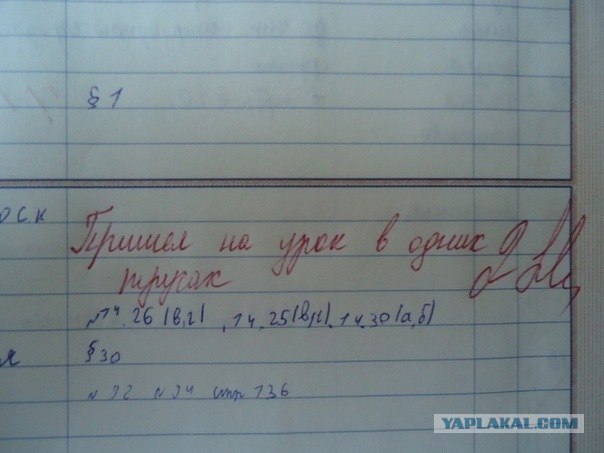 § 1
оск
Пришел на урок в одних 2
трусах
№14.26(в,г), 14.25(в,г), 14.30(а,б)
я
§30
№ 92 № 94 стр 136
YAPLAKAL.COM